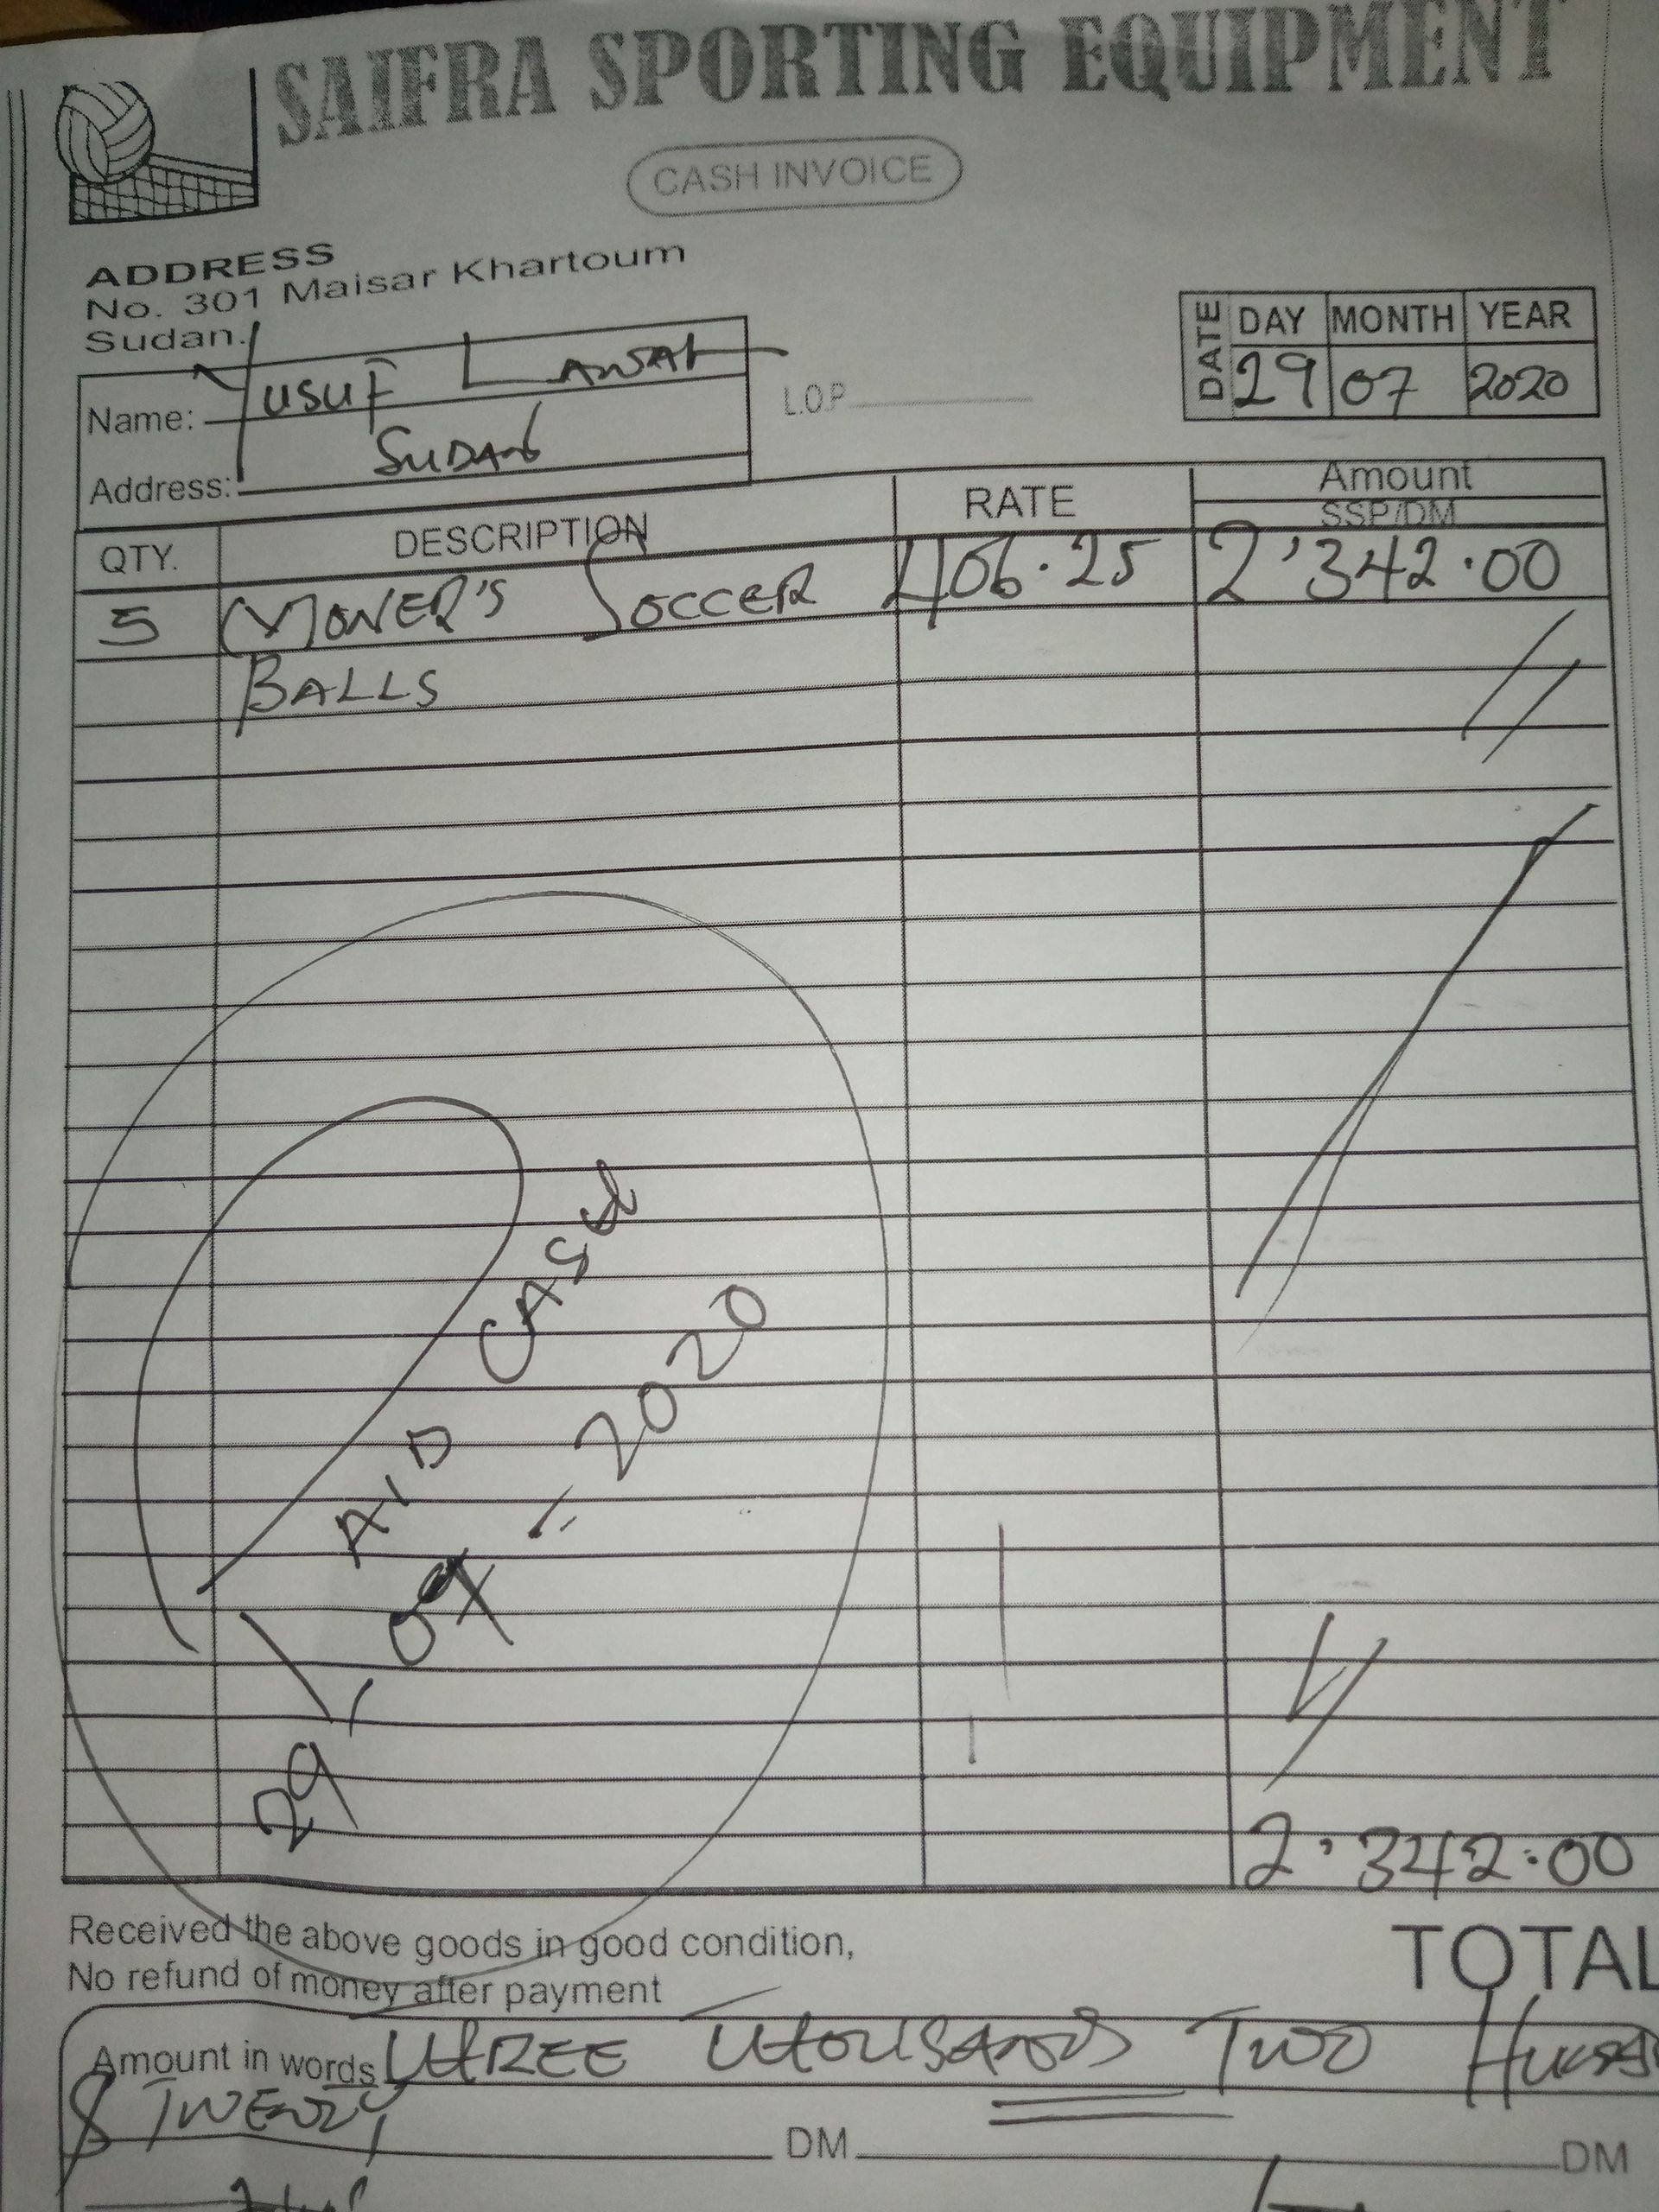 SAIFRA SPORTING EQUIPMENT
CASH INVOICE
ADDRESS
No. 301 Maisar Khartoum
Sudan.
DATE DAY MONTH YEAR
29 07 2020
Name: YUSUF LAWAL
L.O.P
Address: SUDAN
QTY. DESCRIPTION RATE Amount
SSP/DM
5 MONER'S SOCCER 406.25 2'342.00
BALLS
PAID CASH
29 - 07 - 2020
2,342:00
Received the above goods in good condition,
No refund of money after payment
TOTAL
Amount in words THREE THOUSANDS TWO
& TWENTY
DM DM